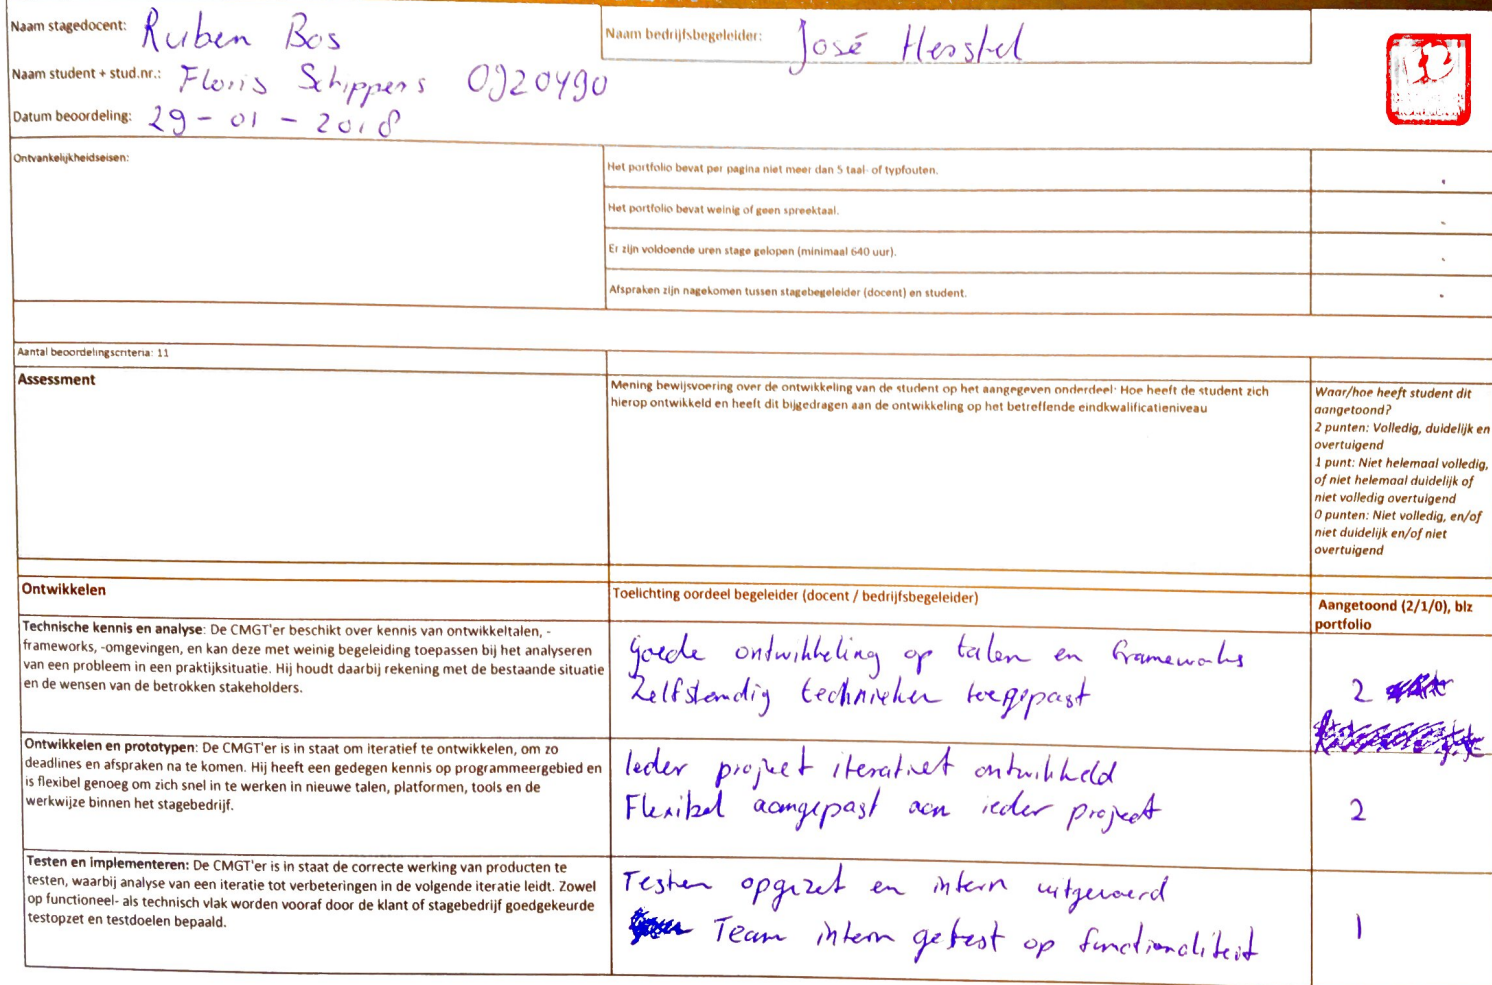 Naam stagedocent: Ruben Bos
Naam bedrijfsbegeleider: José
Naam student + stud.nr.: Floris Schippers 0920490
Datum beoordeling: 29-01-2018
Ontvankelijkheidseisen:
Het portfolio bevat per pagina niet meer dan 5 taal- of typfouten.
Het portfolio bevat weinig of geen spreektaal.
Er zijn voldoende uren stage gelopen (minimaal 640 uur).
Afspraken zijn nagekomen tussen stagebegeleider (docent) en student.
Aantal beoordelingscriteria: 11
Assessment
Mening bewijsvoering over de ontwikkeling van de student op het aangegeven onderdeel: Hoe heeft de student zich
hierop ontwikkeld en heeft dit bijgedragen aan de ontwikkeling op het betreffende eindkwalificatieniveau
Waar/hoe heeft student dit
aangetoond?
2 punten: Volledig, duidelijk en
overtuigend
1 punt: Niet helemaal volledig,
of niet helemaal duidelijk of
niet volledig overtuigend
0 punten: Niet volledig, en/of
niet duidelijk en/of niet
overtuigend
Ontwikkelen
Toelichting oordeel begeleider (docent / bedrijfsbegeleider)
Aangetoond (2/1/0), blz
portfolio
Technische kennis en analyse: De CMGT'er beschikt over kennis van ontwikkeltalen, -
frameworks, -omgevingen, en kan deze met weinig begeleiding toepassen bij het analyseren
van een probleem in een praktijksituatie. Hij houdt daarbij rekening met de bestaande situatie
en de wensen van de betrokken stakeholders.
Goede ontwikkeling op talen en frameworks
Zelfstandig technieken toegepast
2
Ontwikkelen en prototypen: De CMGT'er is in staat om iteratief te ontwikkelen, om zo
deadlines en afspraken na te komen. Hij heeft een gedegen kennis op programmeergebied en
is flexibel genoeg om zich snel in te werken in nieuwe talen, platformen, tools en de
werkwijze binnen het stagebedrijf.
Ieder project iteratief ontwikkeld
Flexibel aangepast aan ieder project
2
Testen en implementeren: De CMGT'er is in staat de correcte werking van producten te
testen, waarbij analyse van een iteratie tot verbeteringen in de volgende iteratie leidt. Zowel
op functioneel- als technisch vlak worden vooraf door de klant of stagebedrijf goedgekeurde
testopzet en testdoelen bepaald.
Testen opgezet en intern uitgevoerd
Team intern getest op functionaliteit
1